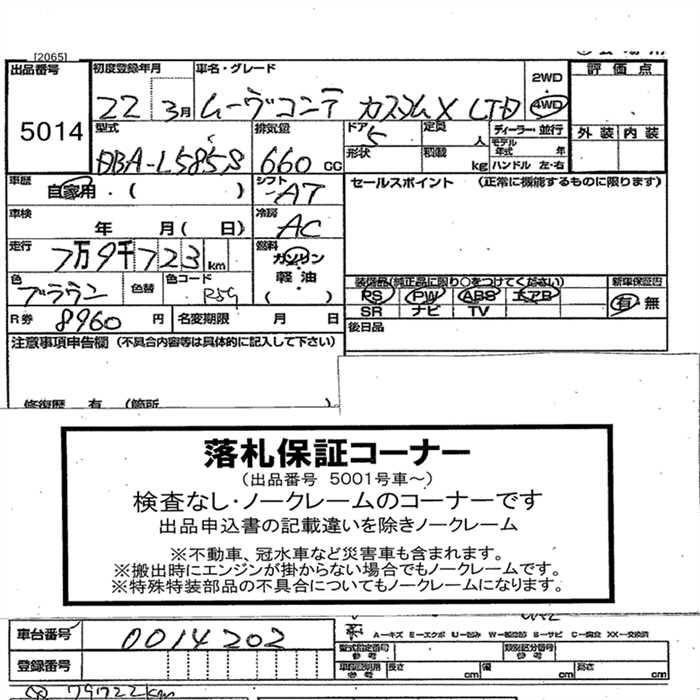 [2065]
出品番号 初度登録年月 車名・グレード 2WD 評価点
5014 22 3月 ムーヴコンテ カスタムX LTD 4WD
型式 排気量 ドア 5 定員 人 ディーラー・並行 外装 内装
DBA-L585S 660 CC 形状 積載 kg モデル年式 年 ハンドル 左・右
車歴 自家用・( ) シフト AT セールスポイント (正常に機能するものに限ります)
車検 年 月( 日) 冷房 AC
走行 7万9千723km 燃料 ガソリン
色 ブラウン 色替 色コード R59 軽油 ( ) 装備品(純正品に限り○をつけてください) 新車保証書
PS PW ABS エアB 有・無
R券 8960円 名変期限 月 日 SR ナビ TV
注意事項申告欄 (不具合内容等は具体的に記入して下さい) 後日品
修復歴 有 (箇所
落札保証コーナー
(出品番号 5001号車~)
検査なし・ノークレームのコーナーです
出品申込書の記載違いを除きノークレーム
※不動車、冠水車など災害車も含まれます。
※搬出時にエンジンが掛からない場合でもノークレームです。
※特殊特装部品の不具合についてもノークレームになります。
車台番号 0014202 A-キズ E-エクボ U-凹み W-補修跡 S-サビ C-腐食 XX-交換済
登録番号 型式指定番号 参考 類別区分番号 参考
車検証明用 参考 長さ cm 幅 cm 高さ cm
79722km